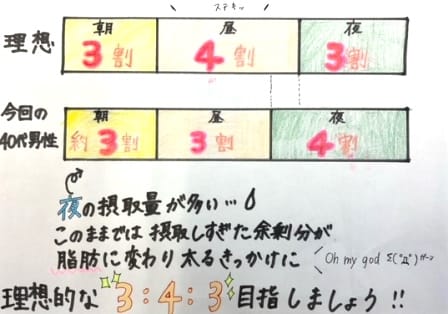 ステキッ
理想
朝 昼 夜
3割 4割 3割
今回の
40代男性
朝 昼 夜
約3割 3割 4割
夜の摂取量が多い…
このままでは摂取しすぎた余剰分が
脂肪に変わり太るきっかけに
Oh my god Σ(ﾟДﾟ)ガーン
理想的な3:4:3目指しましょう!!